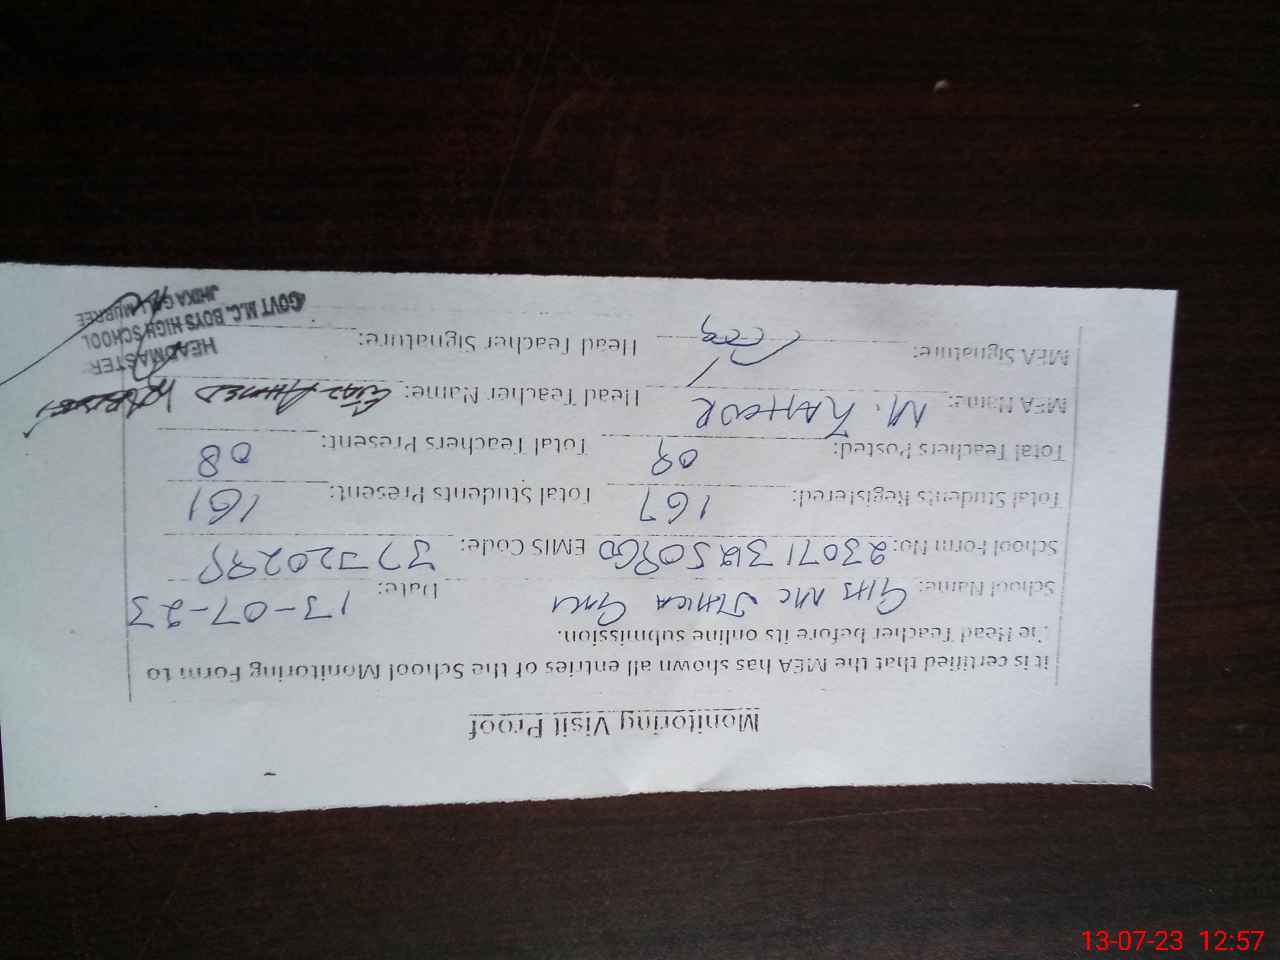 Monitoring Visit Proof
it is certified that the MEA has shown all entries of the School Monitoring Form to
the Head Teacher before its online submission.
School Name: GHS MC JHIKA GALI Date: 13-07-23
School Form No: EMIS Code:
Total Students Registered: 167 Total Students Present: 161
Total Teachers Posted: 09 Total Teachers Present: 08
MEA Name: M. Head Teacher Name: AHMED
MEA Signature: Head Teacher Signature:
HEADMASTER
GOVT M.C. BOYS HIGH SCHOOL
JHIKA GALI MURREE
13-07-23 12:57